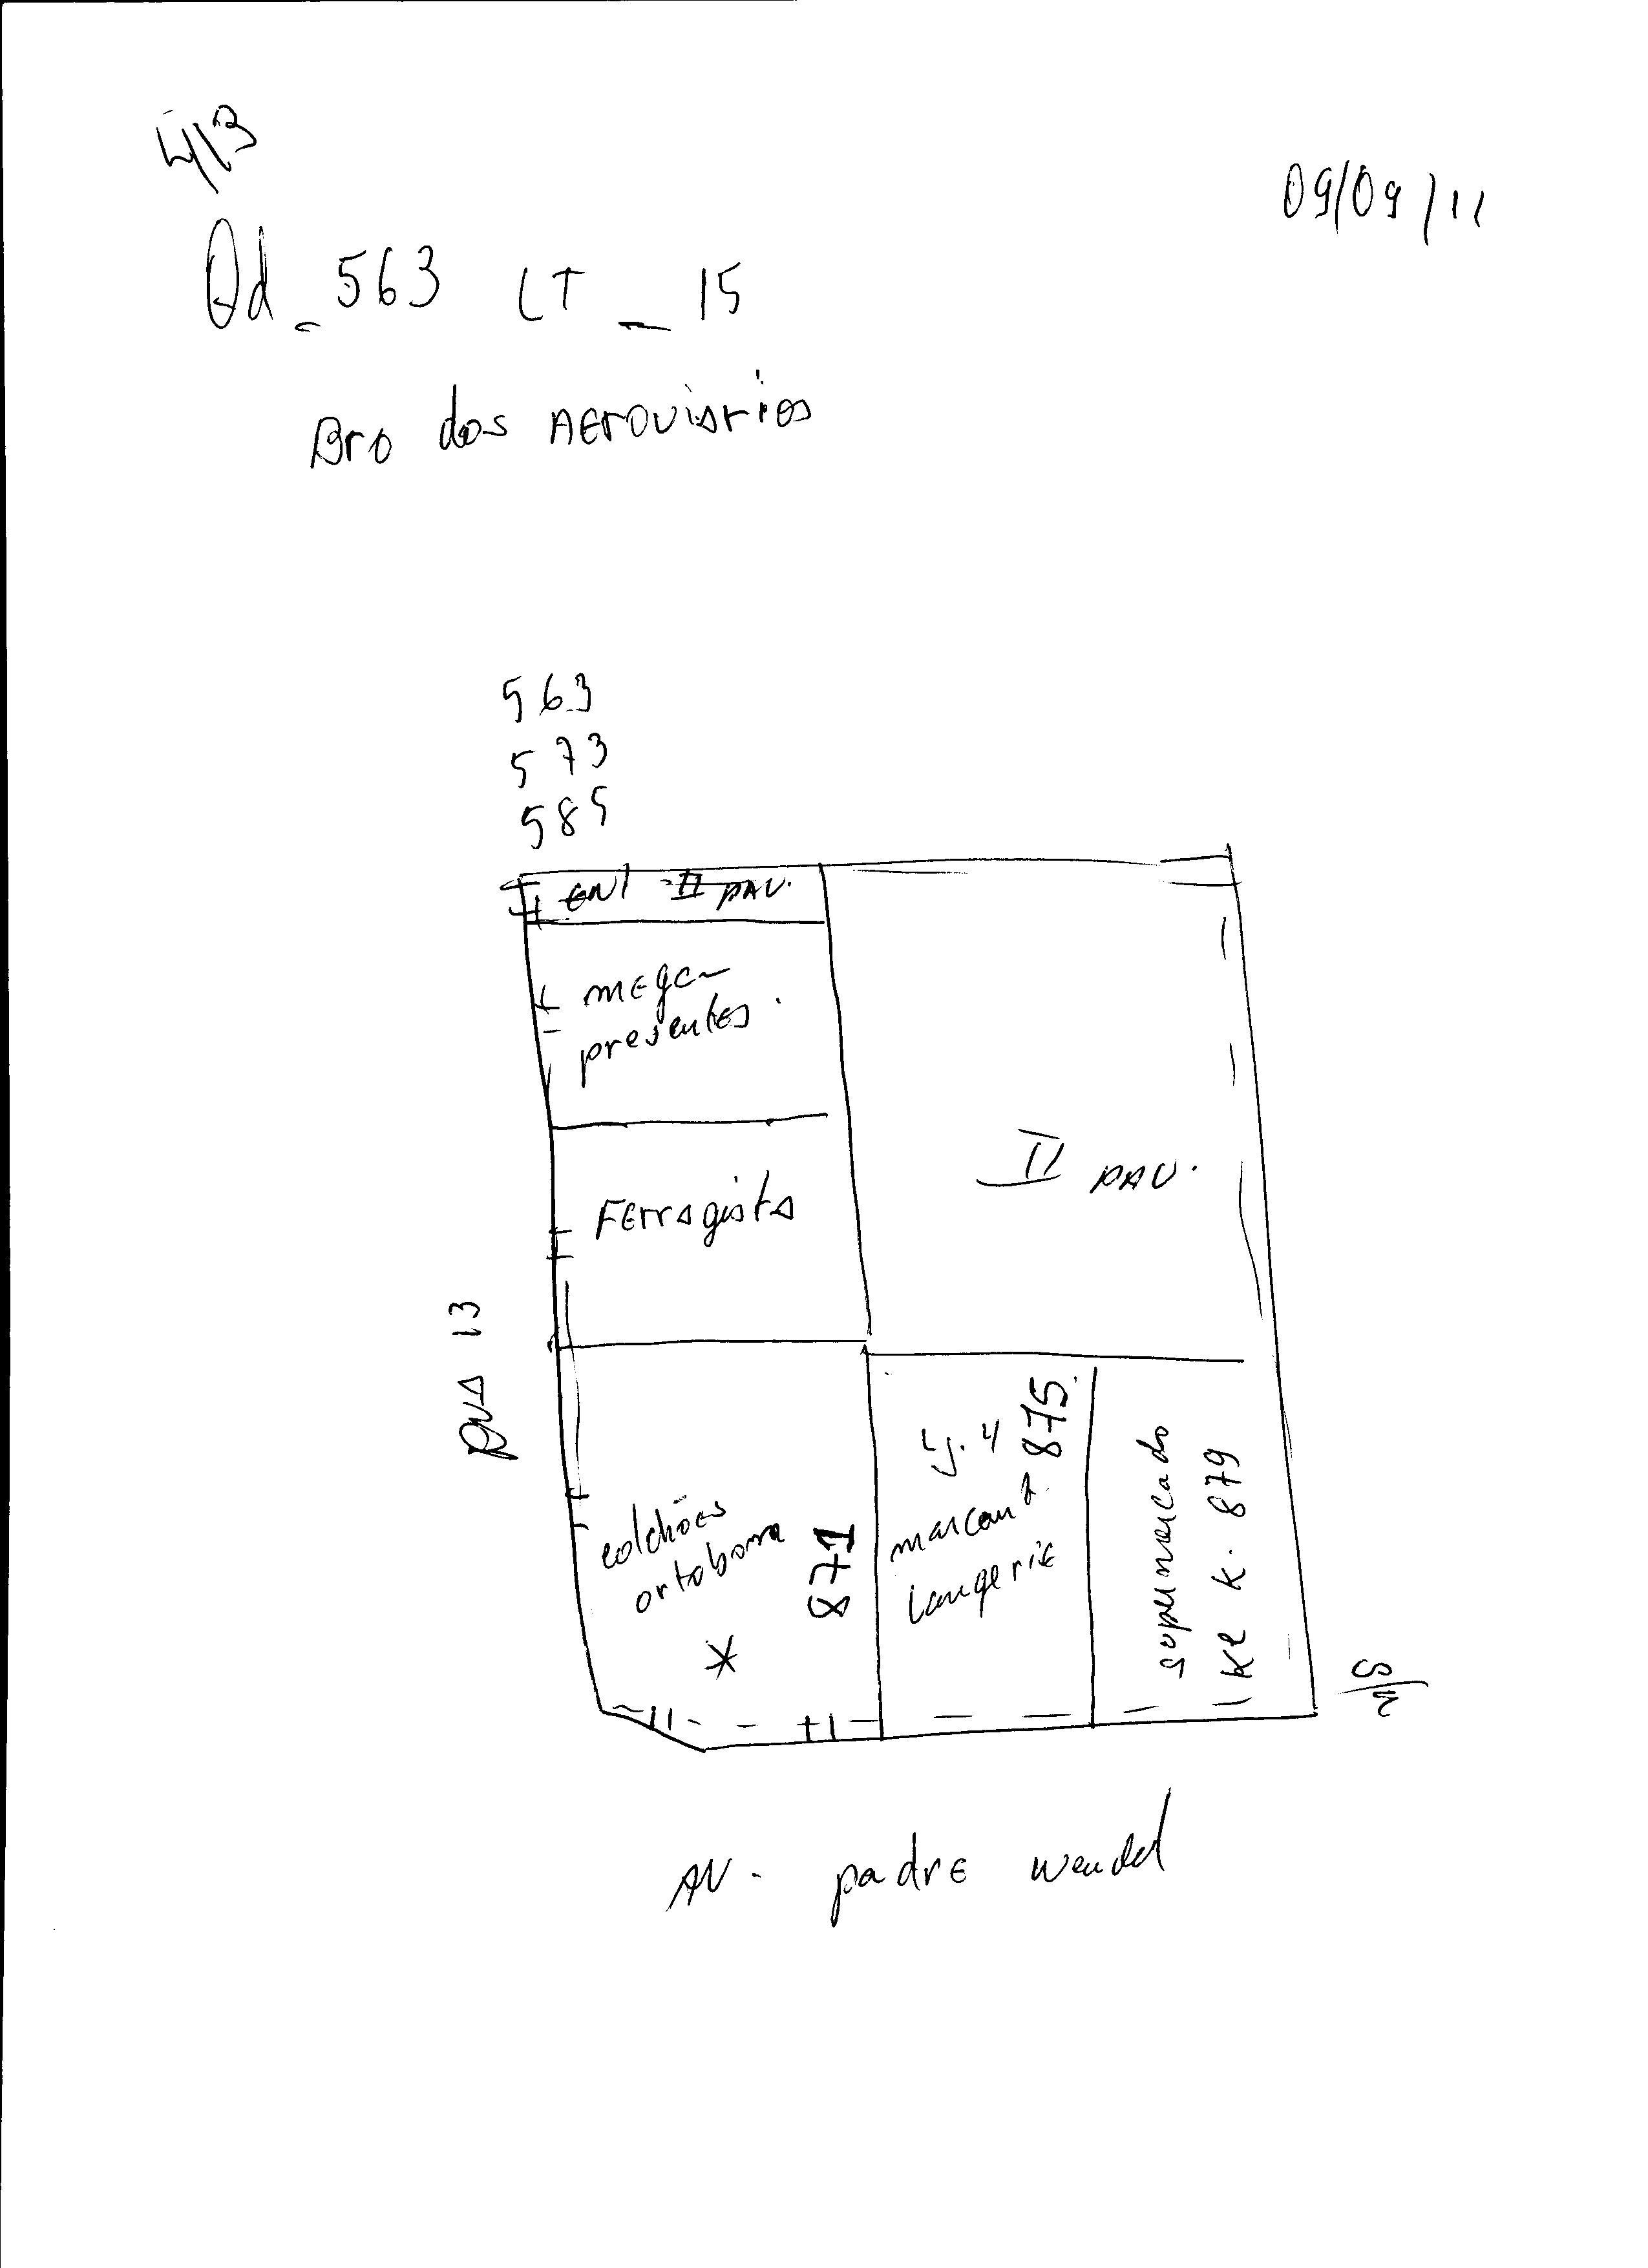 09/09/11
Qd - 563 LT - 15
Bro dos AEroviArios
563
573
585
II PAV.
mega
presentes.
FErragista
II PAV.
RUA 13
colchões
ortobom
871
Lj. 4 875.
langeriE
supermercado
k. 879
AV. padrE wendel